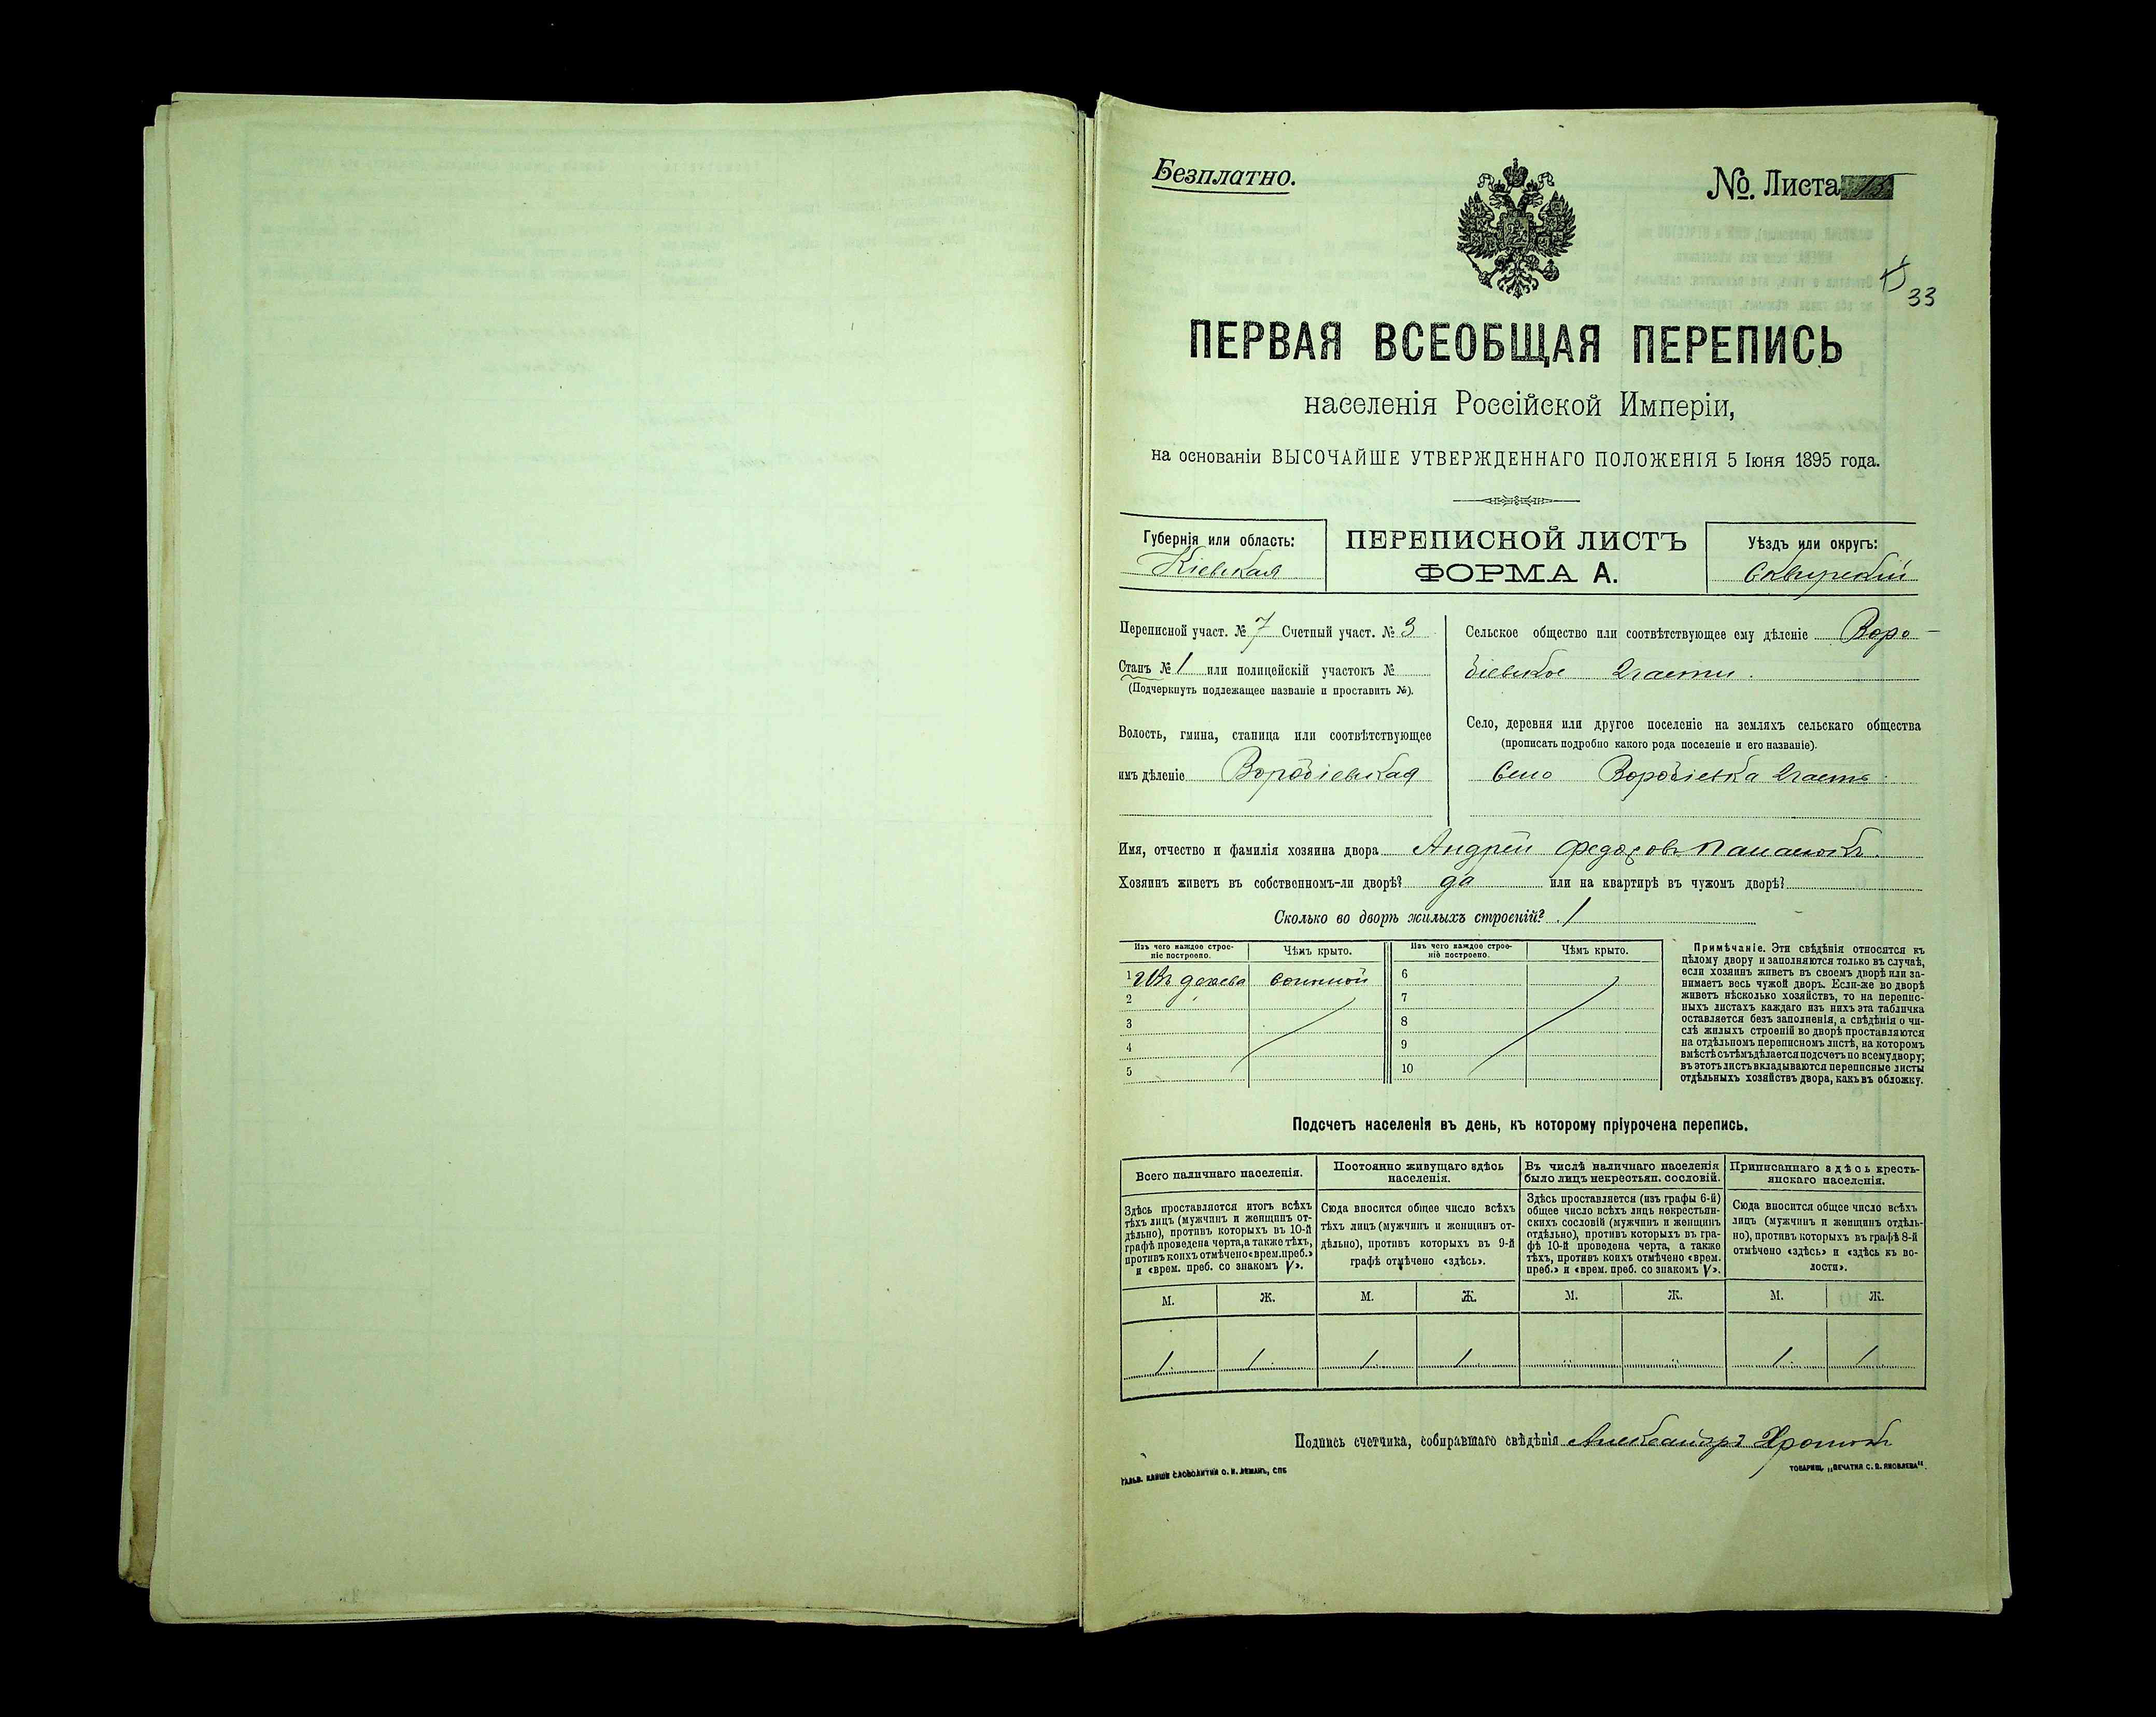 Безплатно.
№. Листа 15
33
ПЕРВАЯ ВСЕОБЩАЯ ПЕРЕПИСЬ
населенія Россійской Имперіи,
на основаніи ВЫСОЧАЙШЕ УТВЕРЖДЕННАГО ПОЛОЖЕНІЯ 5 Іюня 1895 года.
Губернія или область:
Кіевская
ПЕРЕПИСНОЙ ЛИСТЪ
ФОРМА А.
Уѣздъ или округъ:
Сквирскій
Переписной участ. № 7 Счетный участ. № 3
Станъ № 1 или полицейскій участокъ №
(Подчеркнуть подлежащее названіе и проставить №).
Волость, гмина, станица или соотвѣтствующее
имъ дѣленіе Воробіевская
Сельское общество или соотвѣтствующее ему дѣленіе Воро-
біевское 2 части.
Село, деревня или другое поселеніе на земляхъ сельскаго общества
(прописать подробно какого рода поселеніе и его названіе).
Село Воробіевка 2 часть
Имя, отчество и фамилія хозяина двора Андрей Федоровъ
Хозяинъ живетъ въ собственномъ-ли дворѣ? да или на квартирѣ въ чужомъ дворѣ?
Сколько во дворѣ жилыхъ строеній? 1
Изъ чего каждое строе-
ніе построено.
Чѣмъ крыто.
Изъ чего каждое строе-
ніе построено.
Чѣмъ крыто.
1 Изъ дерева соломой
2
3
4
5
6
7
8
9
10
Примѣчаніе. Эти свѣдѣнія относятся къ
цѣлому двору и заполняются только въ случаѣ,
если хозяинъ живетъ въ своемъ дворѣ или за-
нимаетъ весь чужой дворъ. Если-же во дворѣ
живетъ нѣсколько хозяйствъ, то на перепис-
ныхъ листахъ каждаго изъ нихъ эта табличка
оставляется безъ заполненія, а свѣдѣнія о чи-
слѣ жилыхъ строеній во дворѣ проставляются
на отдѣльномъ переписномъ листѣ, на которомъ
вмѣстѣ съ тѣмъ дѣлается подсчетъ по всему двору;
въ этотъ листъ вкладываются переписные листы
отдѣльныхъ хозяйствъ двора, какъ въ обложку.
Подсчетъ населенія въ день, къ которому пріурочена перепись.
Всего наличнаго населенія.
Здѣсь проставляется итогъ всѣхъ
тѣхъ лицъ (мужчинъ и женщинъ от-
дѣльно), противъ которыхъ въ 10-й
графѣ проведена черта, а также тѣхъ,
противъ коихъ отмѣчено «врем. преб.»
и «врем. преб. со знакомъ V».
М. Ж.
1 1
Постоянно живущаго здѣсь
населенія.
Сюда вносится общее число всѣхъ
тѣхъ лицъ (мужчинъ и женщинъ от-
дѣльно), противъ которыхъ въ 9-й
графѣ отмѣчено «здѣсь».
М. Ж.
1 1
Въ числѣ наличнаго населенія
было лицъ некрестьян. сословій.
Здѣсь проставляется (изъ графы 6-й)
общее число всѣхъ лицъ некрестьян-
скихъ сословій (мужчинъ и женщинъ
отдѣльно), противъ которыхъ въ гра-
фѣ 10-й проведена черта, а также
тѣхъ, противъ коихъ отмѣчено «врем.
преб.» и «врем. преб. со знакомъ V».
М. Ж.
Приписаннаго здѣсь кресть-
янскаго населенія.
Сюда вносится общее число всѣхъ
лицъ (мужчинъ и женщинъ отдѣль-
но), противъ которыхъ въ графѣ 8-й
отмѣчено «здѣсь» и «здѣсь къ во-
лости».
М. Ж.
1 1
Подпись счетчика, собиравшаго свѣдѣнія Александръ
ТОВАРИЩ. „ПЕЧАТНЯ С. П. ЯКОВЛЕВА“.